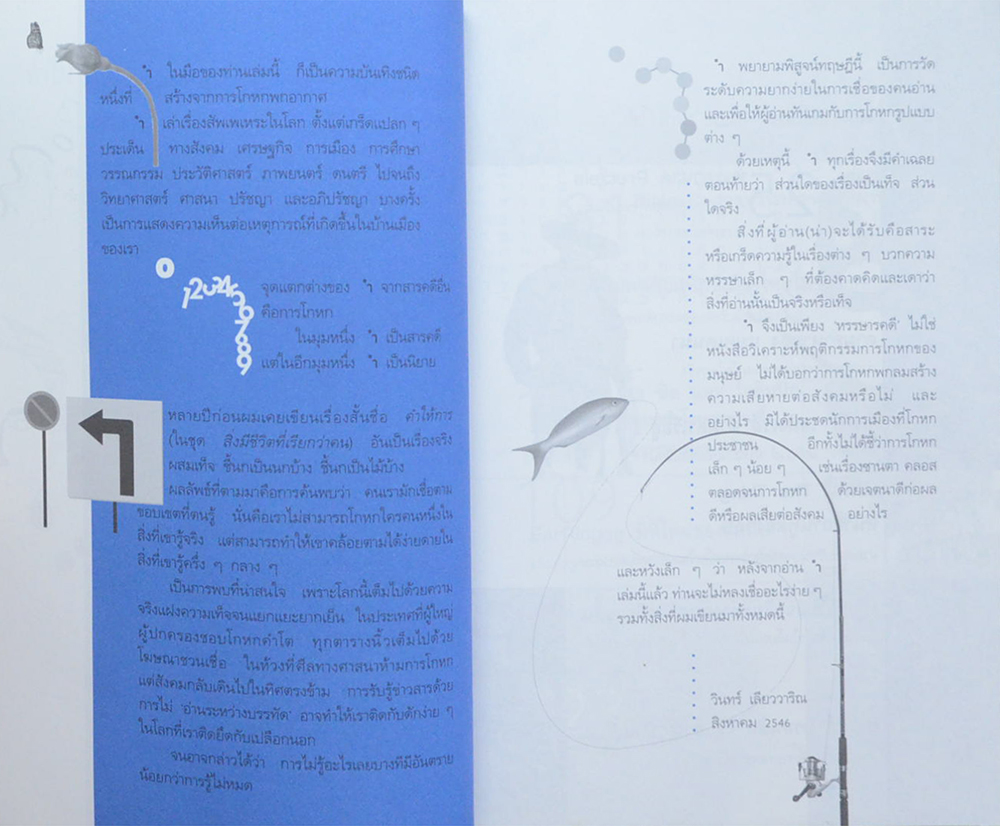 ำ ในมือของท่านเล่มนี้ ก็เป็นความบันเทิงชนิด
หนึ่งที่ สร้างจากการโกหกพกอากาศ
ำ เล่าเรื่องสัพเพเหระในโลก ตั้งแต่เกร็ดแปลก ๆ
ประเด็น ทางสังคม เศรษฐกิจ การเมือง การศึกษา
วรรณกรรม ประวัติศาสตร์ ภาพยนตร์ ดนตรี ไปจนถึง
วิทยาศาสตร์ ศาสนา ปรัชญา และอภิปรัชญา บางครั้ง
เป็นการแสดงความเห็นต่อเหตุการณ์ที่เกิดขึ้นในบ้านเมือง
ของเรา
0 1 2 3 4 5 6 7 8 9
จุดแตกต่างของ ำ จากสารคดีอื่น
คือการโกหก
ในมุมหนึ่ง ำ เป็นสารคดี
แต่ในอีกมุมหนึ่ง ำ เป็นนิยาย
หลายปีก่อนผมเคยเขียนเรื่องสั้นชื่อ คำให้การ
(ในชุด สิ่งมีชีวิตที่เรียกว่าคน) อันเป็นเรื่องจริง
ผสมเท็จ ชี้นกเป็นนกบ้าง ชี้นกเป็นไม้บ้าง
ผลลัพธ์ที่ตามมาคือการค้นพบว่า คนเรามักเชื่อตาม
ขอบเขตที่ตนรู้ นั่นคือเราไม่สามารถโกหกใครคนหนึ่งใน
สิ่งที่เขารู้จริง แต่สามารถทำให้เขาคล้อยตามได้ง่ายดายใน
สิ่งที่เขารู้ครึ่ง ๆ กลาง ๆ
เป็นการพบที่น่าสนใจ เพราะโลกนี้เต็มไปด้วยความ
จริงแฝงความเท็จจนแยกแยะยากเย็น ในประเทศที่ผู้ใหญ่
ผู้ปกครองชอบโกหกคำโต ทุกตารางนิ้วเต็มไปด้วย
โฆษณาชวนเชื่อ ในห้วงที่ศีลทางศาสนาห้ามการโกหก
แต่สังคมกลับเดินไปในทิศตรงข้าม การรับรู้ข่าวสารด้วย
การไม่ 'อ่านระหว่างบรรทัด' อาจทำให้เราติดกับดักง่าย ๆ
ในโลกที่เราติดยึดกับเปลือกนอก
จนอาจกล่าวได้ว่า การไม่รู้อะไรเลยบางทีมีอันตราย
น้อยกว่าการรู้ไม่หมด
ำ พยายามพิสูจน์ทฤษฎีนี้ เป็นการวัด
ระดับความยากง่ายในการเชื่อของคนอ่าน
และเพื่อให้ผู้อ่านทันเกมกับการโกหกรูปแบบ
ต่าง ๆ
ด้วยเหตุนี้ ำ ทุกเรื่องจึงมีคำเฉลย
ตอนท้ายว่า ส่วนใดของเรื่องเป็นเท็จ ส่วน
ใดจริง
สิ่งที่ผู้อ่าน(น่า)จะได้รับคือสาระ
หรือเกร็ดความรู้ในเรื่องต่าง ๆ บวกความ
หรรษาเล็ก ๆ ที่ต้องคาดคิดและเดาว่า
สิ่งที่อ่านนั้นเป็นจริงหรือเท็จ
ำ จึงเป็นเพียง 'หรรษารคดี' ไม่ใช่
หนังสือวิเคราะห์พฤติกรรมการโกหกของ
มนุษย์ ไม่ได้บอกว่าการโกหกพกลมสร้าง
ความเสียหายต่อสังคมหรือไม่ และ
อย่างไร มิได้ประชดนักการเมืองที่โกหก
ประชาชน อีกทั้งไม่ได้ชี้ว่าการโกหก
เล็ก ๆ น้อย ๆ เช่นเรื่องซานตา คลอส
ตลอดจนการโกหก ด้วยเจตนาดีก่อผล
ดีหรือผลเสียต่อสังคม อย่างไร
และหวังเล็ก ๆ ว่า หลังจากอ่าน ำ
เล่มนี้แล้ว ท่านจะไม่หลงเชื่ออะไรง่าย ๆ
รวมทั้งสิ่งที่ผมเขียนมาทั้งหมดนี้
วินทร์ เลียววาริณ
สิงหาคม 2546